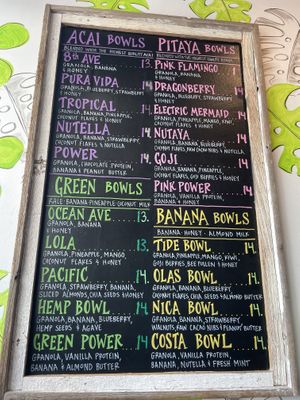 ACAI BOWLS
BLENDED WITH THE HIGHEST QUALITY ACAI
8th AVE 13.
GRANOLA, BANANA
& HONEY
PURA VIDA 14
GRANOLA, BLUEBERRY, STRAWBERRY
& HONEY
TROPICAL 14
GRANOLA, BANANA, PINEAPPLE,
COCONUT FLAKES & HONEY
NUTELLA 14
GRANOLA, BANANA, STRAWBERRY
COCONUT FLAKES & NUTELLA
POWER 14
GRANOLA, CHOCOLATE, PROTEIN,
BANANA & PEANUT BUTTER
GREEN BOWLS
KALE·BANANA·PINEAPPLE·COCONUT MILK
OCEAN AVE... 13.
GRANOLA, BANANA
& HONEY
LOLA 13
GRANOLA, PINEAPPLE, MANGO,
COCONUT FLAKES & HONEY
PACIFIC 14
GRANOLA, STRAWBERRY, BANANA,
SLICED ALMONDS, CHIA SEEDS & HONEY
HEMP BOWL. 14
GRANOLA, BANANA, BLUEBERRY,
HEMP SEEDS & AGAVE
GREEN POWER 14.
GRANOLA, VANILLA PROTEIN,
BANANA & ALMOND BUTTER
PITAYA BOWLS
PINK FLAMINGO 13.
GRANOLA, BANANA
& HONEY
DRAGONBERRY 14
GRANOLA, BLUEBERRY, STRAWBERRY
& HONEY
ELECTRIC MERMAID 14
GRANOLA, PINEAPPLE, MANGO, KIWI
COCONUT FLAKES & HONEY
NUTAYA 14
GRANOLA, BANANA, BLUEBERRY,
COCONUT FLAKES, RAW CACAO NIBS & NUTELLA
GOJI 14
GRANOLA, PINEAPPLE, BLUEBERRY,
COCONUT FLAKES, GOJI BERRIES & HONEY
PINK POWER 14
GRANOLA, VANILLA PROTEIN,
BANANA & HONEY
BANANA BOWLS
BANANA·HONEY·ALMOND MILK
TIDE BOWL 14.
GRANOLA, PINEAPPLE, MANGO, KIWI,
GOJI BERRIES, BEE POLLEN & HONEY
OLAS BOWL 14.
GRANOLA, BANANA, BLUEBERRY,
COCONUT FLAKES, CHIA & ALMOND BUTTER
NICA BOWL 14.
GRANOLA, BANANA, STRAWBERRY
WALNUTS, RAW CACAO NIBS & PEANUT BUTTER
COSTA BOWL. 14.
GRANOLA, VANILLA PROTEIN,
BANANA, NUTELLA & FRESH MINT